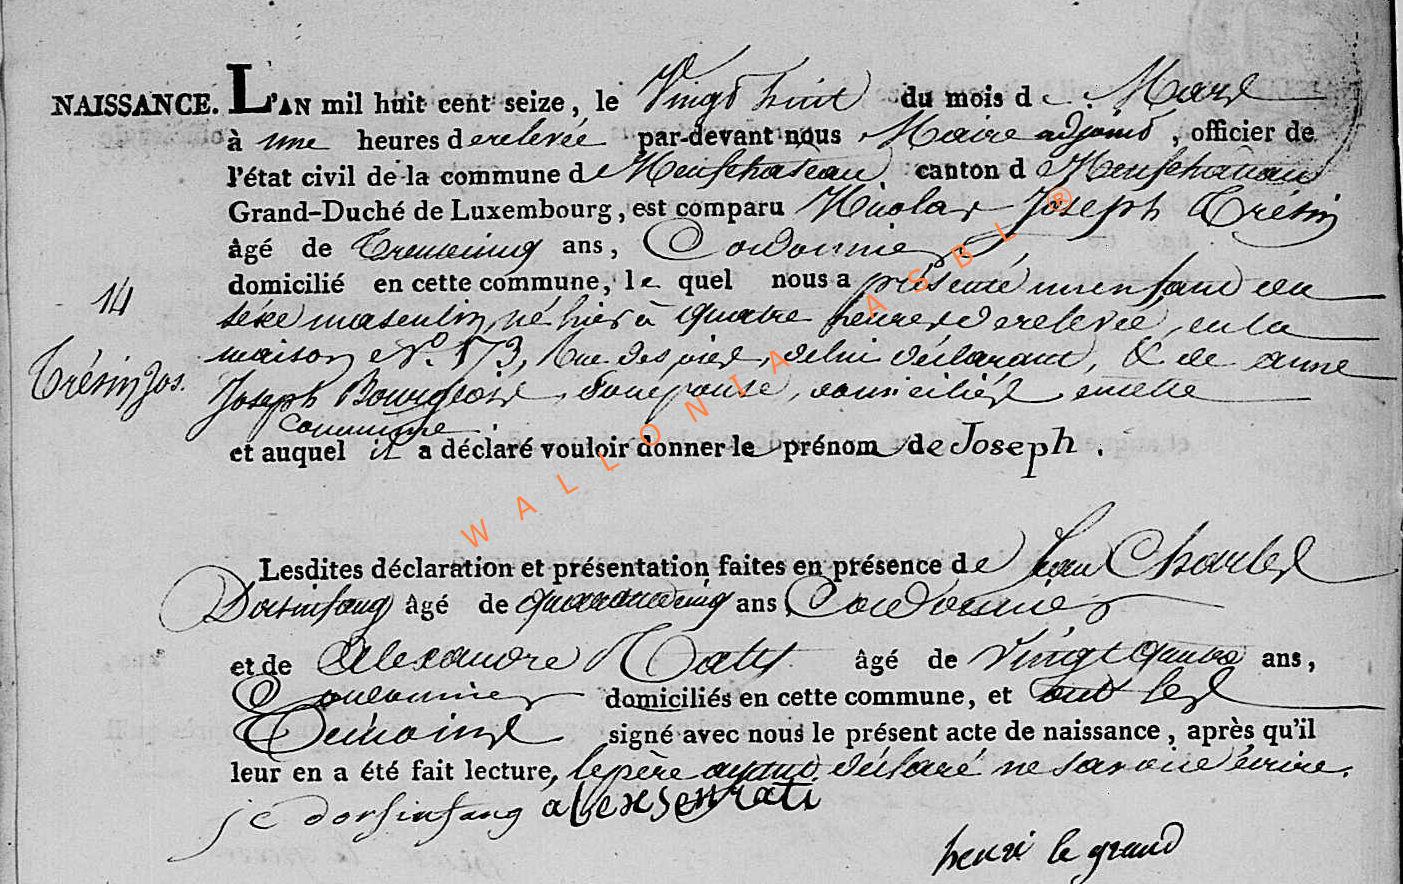 NAISSANCE. L'AN mil huit cent seize, le Vingt huit du mois de Mars
à une heures de relevée par-devant nous Maire adjoint, officier de
l'état civil de la commune de Neufchateau canton de Neufchateau
Grand-Duché de Luxembourg, est comparu Nicolas Joseph Trésin
âgé de Trente cinq ans, Cordonnier,
domicilié en cette commune, le quel nous a présenté un enfant du
14
sexe masculin, né hier à quatre heures de relevée, en la
maison N.º 173, Rue des , de lui déclarant, & de anne
Trésin Jos.
Joseph Bourgeois, son épouse, domiciliés en cette
Commune
et auquel il a déclaré vouloir donner le prénom de Joseph.
Lesdites déclaration et présentation faites en présence de Jean Charles
Dorsinfang âgé de quarante cinq ans Cordonnier
et de Alexandre âgé de Vingt quatre ans,
Cordonnier domiciliés en cette commune, et ont les
Témoins signé avec nous le présent acte de naissance, après qu'il
leur en a été fait lecture, le père ayant déclaré ne savoir écrire.
j c dorsinfang
henri le grand
WALLONIA ASBL ®